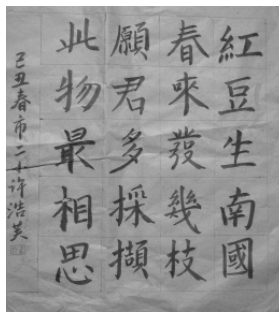 紅豆生南國
春來發幾枝
願君多採擷
此物最相思
己丑春市二十许浩英